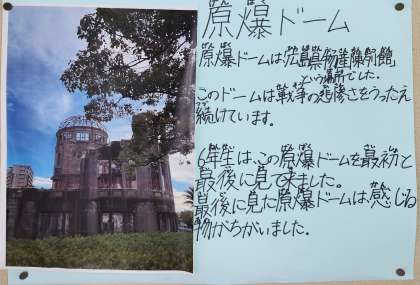 原爆ドーム
原爆ドームは「広島県物産陳列館」
という場所でした。
このドームは戦争の悲惨さをうったえ
続けています。
6年生は、この原爆ドームを最初と
最後に見て来ました。
最後に見た原爆ドームは、感じる
物がちがいました。